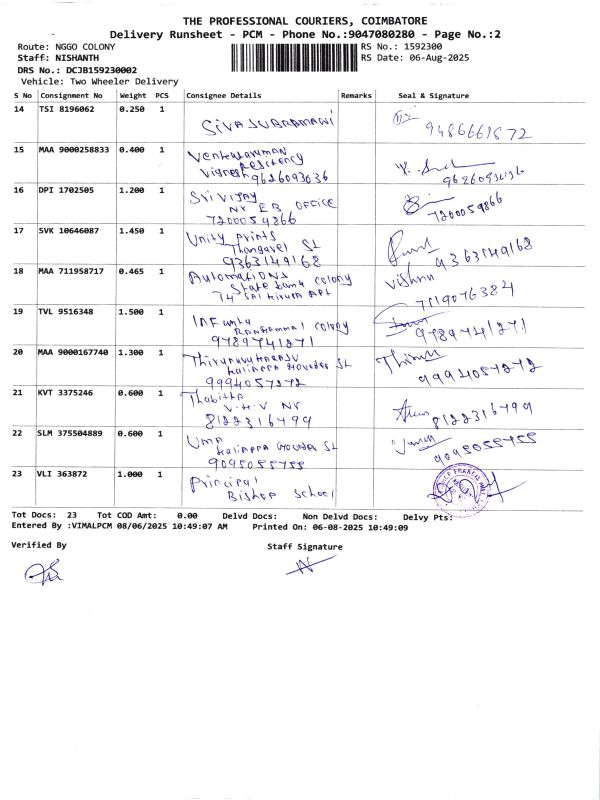 THE PROFESSIONAL COURIERS, COIMBATORE
Delivery Runsheet - PCM - Phone No.:9047080280 - Page No.:2
Route: NGGO COLONY
RS No.: 1592300
Staff: NISHANTH
RS Date: 06-Aug-2025
DRS No.: DCJB159230002
Vehicle: Two Wheeler Delivery
S No Consignment No Weight PCS Consignee Details Remarks Seal & Signature
14 TSI 8196062 0.250 1
SIVA SUBRAMANI
9486661872
15 MAA 9000258833 0.400 1
Venkataraman
Residency
Vignesh 9626093036
9626093036
16 DPI 1702505 1.200 1
Sri Vijay
Nr EB OFFICE
7200059866
7200059866
17 SVK 10646087 1.450 1
Unity Prints
Thangavel St
9363149168
9363149168
18 MAA 711958717 0.465 1
Automations
State bank colony
Vishnu
7119076384
19 TVL 9516348 1.500 1
colony
9789741271
9789741271
20 MAA 9000167740 1.300 1
Kalinppa Gounder St
9994057272
9994057272
21 KVT 3375246 0.600 1
Thabitha
V.H.V Nr
8122316499
8122316499
22 SLM 375504889 0.600 1
Uma
Kalinppa Gounder St
9095055755
9095055755
23 VLI 363872 1.000 1
Principal
Bishop School
Tot Docs: 23 Tot COD Amt: 0.00 Delvd Docs: Non Delvd Docs: Delvy Pts:
Entered By :VIMALPCM 08/06/2025 10:49:07 AM Printed On: 06-08-2025 10:49:09
Verified By Staff Signature